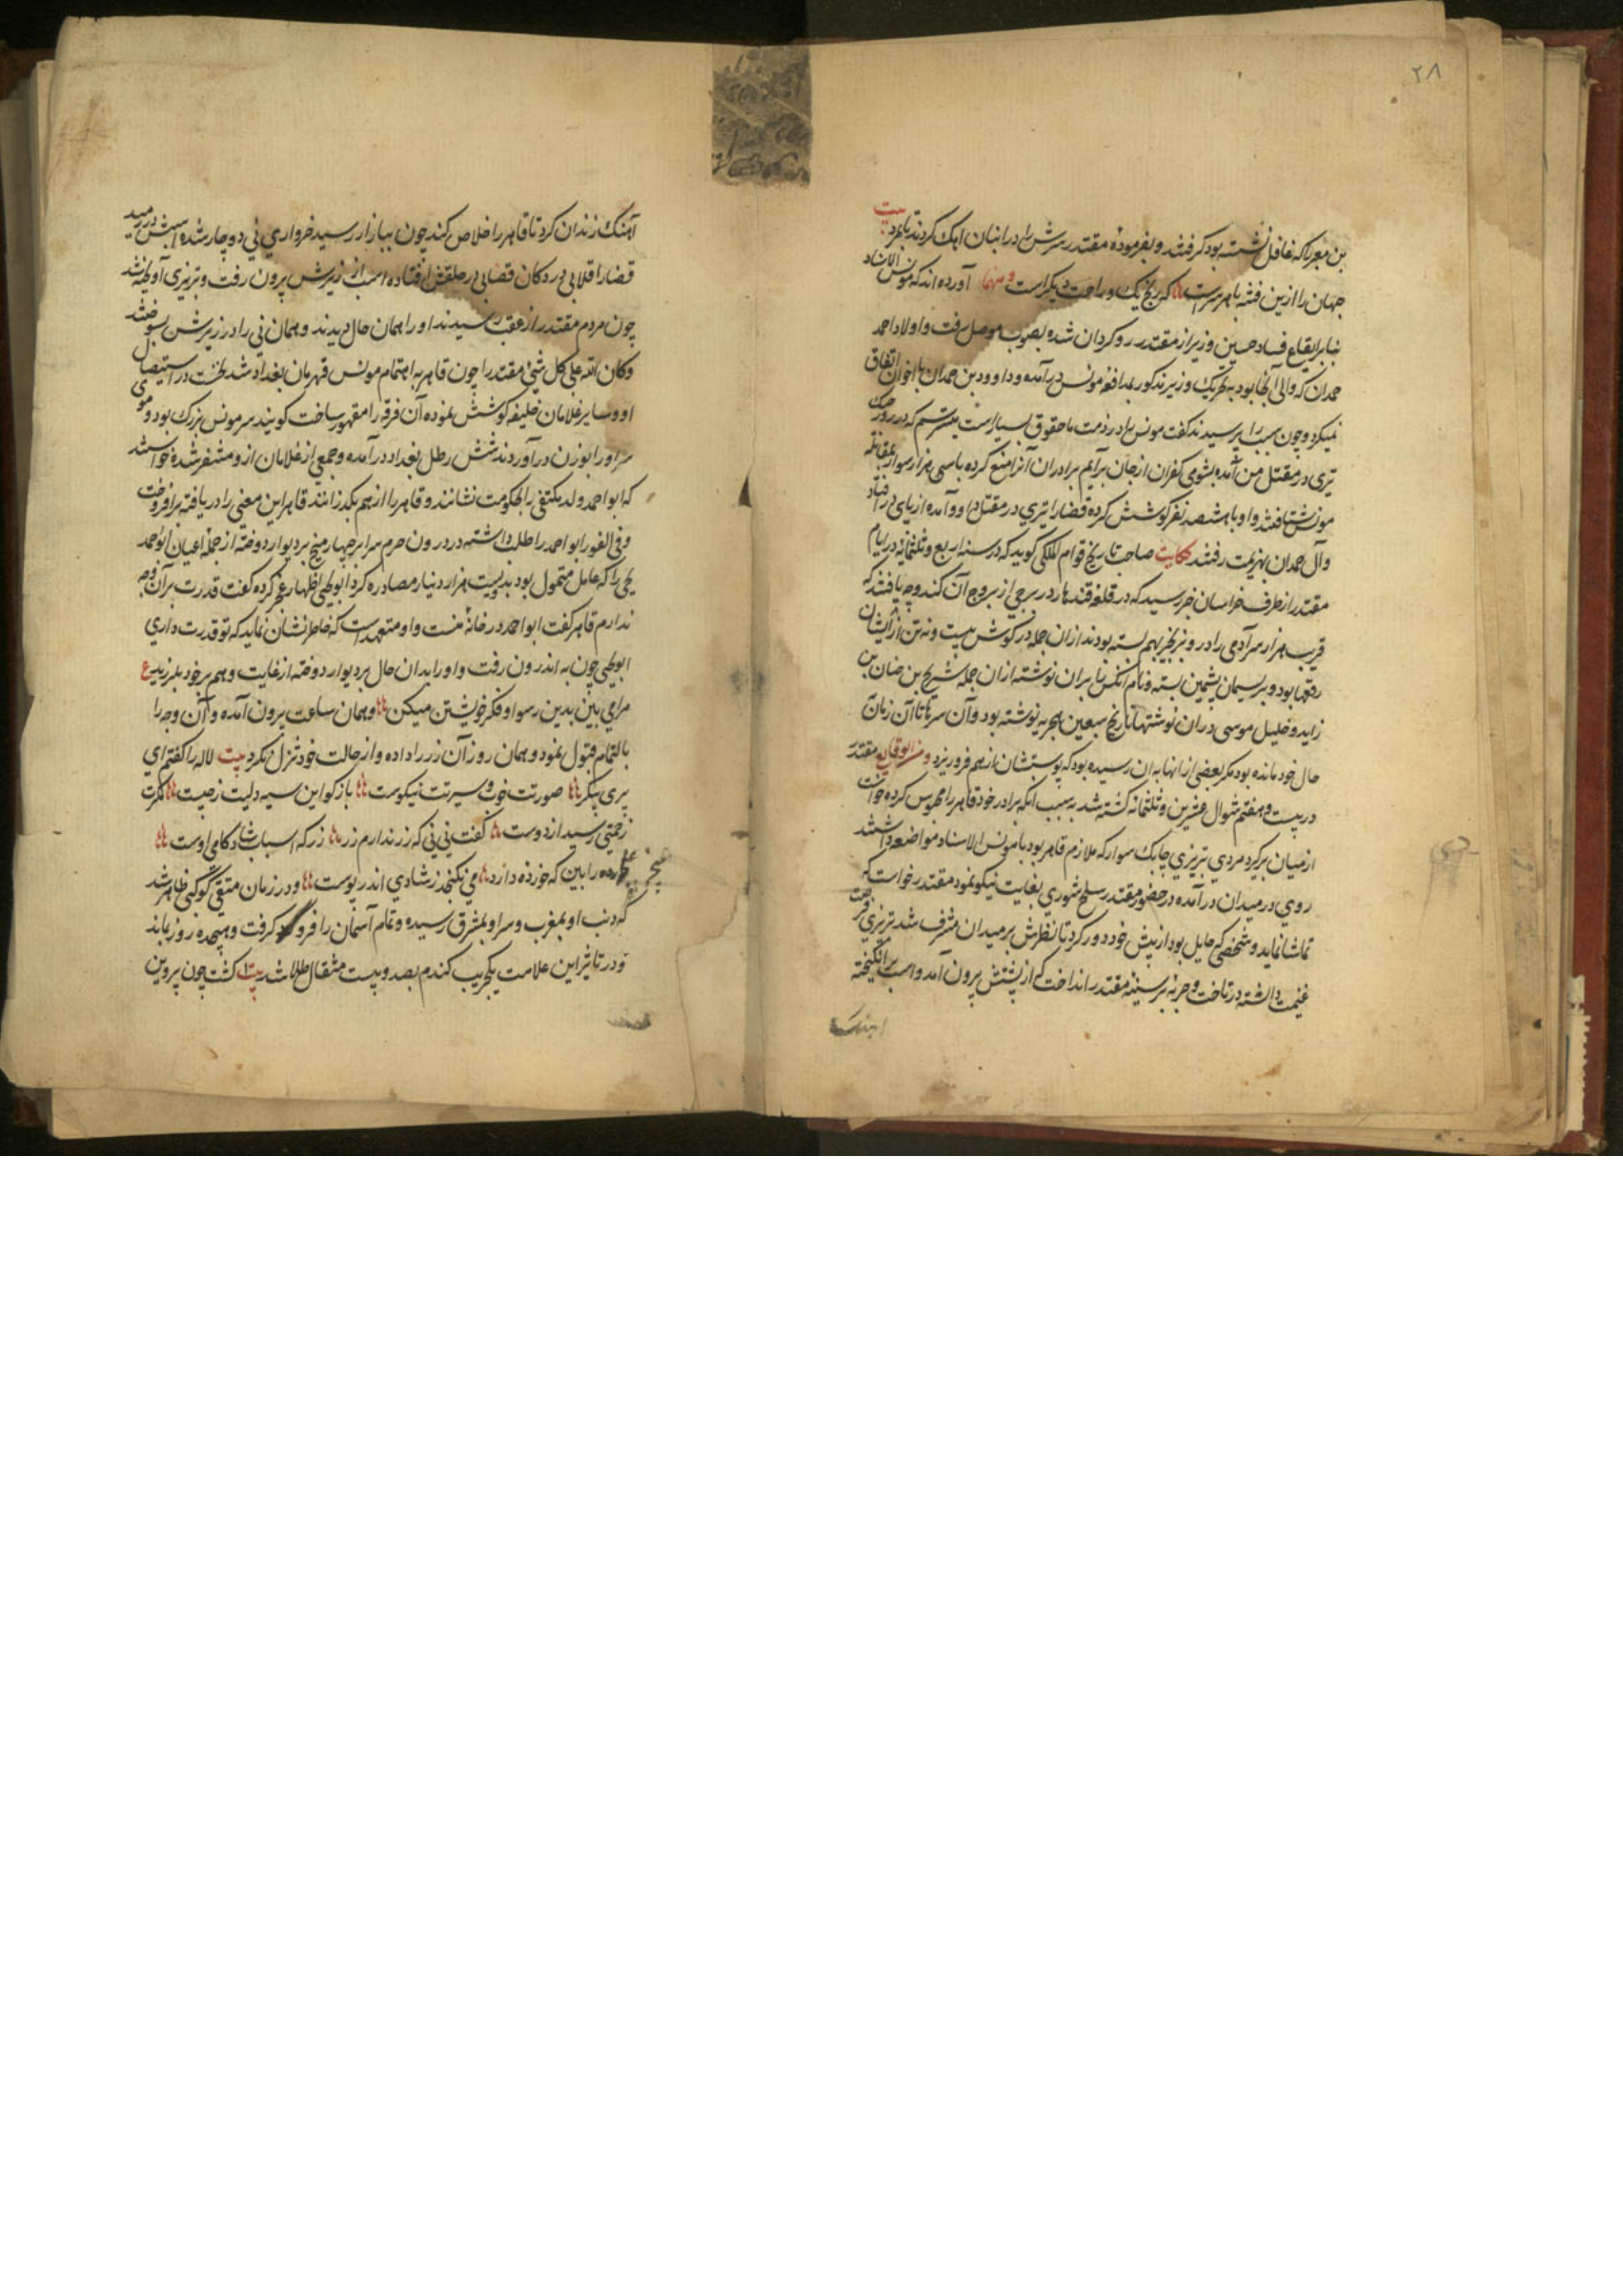 ۲۸
بن معبر را که غافل نشسته بود کرفتند و بفرمودهٔ مقتدر سرش را در انبان اهک کردند تا بمرد بیت
جهان را ازین فتنه با هر سرست که رنج یک و راحت دیکر است و منها آورده اند که مونس الاستاد
بنابر ایقاع فساد حسین وزیر از مقتدر رو کردان شده بصوب موصل رفت و اولاد احمد
حمدان که والی آنجا بود به تحریک وزیر مذکور بمدافعهٔ مونس درآمده و داوود بن حمدان با اخوان اتفاق
نمیکرد و چون سبب را پرسیدند کفت مونس را در ذمت ما حقوق بسیار است میترسم که در روز جنک
تیری در مقتل من آمده بشومی کفران از جان برآیم برادران آنرا منع کرده با سی هزار سوار بمقابلهٔ
مونس شتافتند و او با هشتصد نفر کوشش کرده قضا را تیری در مقتل داوود آمده از پای درافتاد
وآل حمدان بهزیمت رفتند حکایت صاحب تاریخ قوام الملکی کوید که در سنه اربع و ثلثمائه در ایام
مقتدر از طرف خراسان خبر رسید که در قلعه قندهار در برجی از بروج آن کندوچه یافتند که
قریب هزار سر آدمی را در و بزنجیر بهم بسته بودند ازان جمله در کوش بیست و نه تن از ایشان
رقعها بود و بریسمان پشمین بسته و نام آنکس را بران نوشته ازان جمله شریح بن حنان بن
زاید و خلیل موسی دران نوشتها تاریخ سبعین هجریه نوشته بود وآن سرها تا آن زمان
حال خود مانده بود مکر بعضی از انها به ان رسیده بود که پوستشان از هم فرو ریزد و من الوقایع مقتدر
در بیست و هفتم شوال عشرین و ثلثمائه کشته شد به سبب آنکه برادر خود قاهر را محبوس کرده خواست
از میان برکیرد مردی تبریزی چابک سوار که ملازم قاهر بود با مونس الاستاد مواضعه داشتند
روی در میدان درآمده در حضور مقتدر سلح شوری بغایت نیکو نمود مقتدر خواست که
تماشا نماید و شخصی که حایل بود از پیش خود دور کرد تا نظرش بر میدان مشرف شد تبریزی فرصت
غنیمت دانسته در تاخت و حربهٔ بر سینهٔ مقتدر انداخت که از پشتش بیرون آمد و اسب برانکیخته
اهنک
آهنک زندان کرد تا قاهر را خلاص کند چون ببازار رسید خرواری نی دوچار شده اسبش در رمید
قضا را قلابی در دکان قصابی در حلقش افتاده اسب از زیرش بیرون رفت و تبریزی آویخته شد
چون مردم مقتدر از عقب رسیدند او را همان حال دیدند و همان نی را در زیرش بسوختند
وکان الله علی کل شیئ مقتدرا چون قاهر به اهتمام مونس قهرمان بغداد شد نخست در استیصال
او و سایر غلامان خلیفه کوشش نموده آن فرقه را مقهور ساخت کویند سر مونس بزرک بود و موی
سر او را بوزن درآوردند شش رطل بغداد درآمده وجمعی از غلامان ازو متنفر شده خواستند
که ابو احمد ولد مکتفی را بحکومت نشانند و قاهر را از هم بکذرانند قاهر این معنی را دریافته برافروخت
و فی الفور ابو احمد را طلب داشته در درون حرم سرا بر چهار میخ بردیوار دوخته از جمله اعیان ابو احمد
یحیی را که عامل متمول بود بدویست هزار دینار مصادره کرد ابو یحیی اظهار عجز کرده کفت قدرت بر آن وجه
ندارم قاهر کفت ابو احمد در خانهٔ منست و او متعهد است که خاطر نشان نماید که تو قدرت داری
ابو یحیی چون به اندرون رفت و او را بدان حال بردیوار دوخته از غایت وهم بر خود بلرزید ع
مرا می بین بدین رسوا و فکر خویشتن میکن و همان ساعت بیرون آمده و آن وجه را
بالتمام قبول نمود و همان روز آن زر را داده و از حالت خود تنزل نکرد بیت لاله را کفتم ای
پری پیکر صورتت خوب و سیرتت نیکوست باز کو این سیه دلیت ز چیست مکرت
زحمتی رسید از دوست کفت نی نی که زر ندارم زر زر که اسباب شادکامی اوست
غنچه را بین که خورده دارد می نکنجد ز شادی اندر پوست و در زمان متقی کوکبی ظاهر شد
که دنب او بمغرب و سر او بمشرق رسیده و تمام آسمان را فرو کرفت و هیجده روز بماند
و در تاثیر این علامت یکجریب کندم بصد و بیست مثقال طلا شد بیت کشت چون پروین